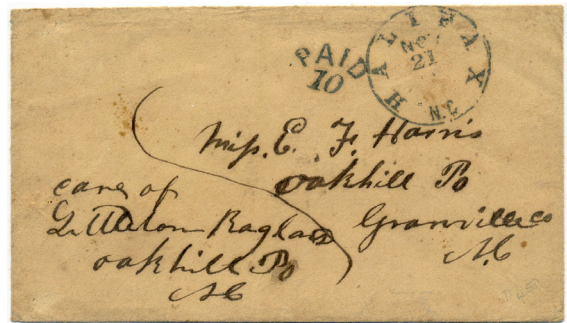 HALIFAX
NOV
21
N.C
PAID
10
Miss. E. F. Harris
oakhill Po
Granville co
N.C
care of
Littleton Ragland
oakhill Po
NC